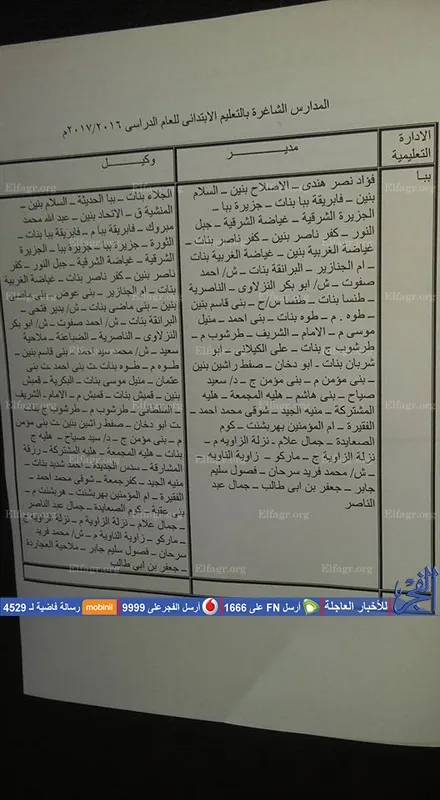 المدارس الشاغرة بالتعليم الابتدائى للعام الدراسى ٢٠١٧/٢٠١٦م
الادارة التعليمية
مديـــر
وكيـــل
ببا
فؤاد نصر هندى – الاصلاح بنين – السلام
بنين – فابريقة ببا بنات – جزيرة ببا –
الجزيرة الشرقية – غياضة الشرقية – جبل
النور – كفر ناصر بنين – كفر ناصر بنات –
غياضة الغربية بنين – غياضة الغربية بنات
– ام الجنازير – البرانقة بنات – ش/ احمد
صفوت – ش/ ابو بكر النزلاوى – الناصرية
– طنسا بنات – طنسا س/ح – بنى قاسم بنين
– طوه . م – طوه بنات – بنى احمد – منيل
موسى م – الامام – الشريف – طرشوب م –
طرشوب ج بنات – على الكيلانى – ابو
شربان بنات – ابو دخان – صفط راشين بنين
– بنى مؤمن م – بنى مؤمن ج – د/ سعيد
صياح – بنى هاشم – هليه المجمعة – هليه
المشتركة – منيه الجيد – شوقى محمد احمد –
الفقيرة م – ام المؤمنين بهربشنت – كوم
الصعايدة – جمال علام – نزلة الزاويه م –
نزلة الزاوية ج – ماركو – زاوية الناويه م
– ش/ محمد فريد سرحان – فصول سليم
جابر – جعفر بن ابى طالب – جمال عبد
الناصر
الجلاء بنات – ببا الحديثة – السلام بنين –
المنشية ق – الاتحاد بنين – عبد الله محمد
مبروك – فابريقة ببا م – فابريقة ببا بنات –
الثورة – جزيرة ببا – جزيرة ببا – الجزيرة
الشرقية – غياضة الشرقية – جبل النور – كفر
ناصر بنين – كفر ناصر بنات – غياضة الغربية
بنات – ام الجنازير – بنى عوض – بنى ماضى
بنين – بنى ماضى بنات – ش/ بنير فتحى –
البرانقة بنات – ش/ احمد صفوت – ش/ ابو بكر
النزلاوى – الناصرية – الضباعنة – ملاحية
سعيد – ش/ محمد سيد احمد – بنى قاسم بنين –
طوه م – طوه بنات – بنى احمد – بنى
عثمان – منيل موسى بنات – البكرية – قمبش
بنين – قمبش بنات – قمبش م – الامام – الشريف
– طرشوب م – طرشوب ج
ت ابو دخان – صفط راشين بنين – بنى مؤمن
م – بنى مؤمن ج – د/ سيد صياح – هليه ج
بنات – هليه المجمعة – هليه المشتركة – رزقة
المشارقة – سدس الجديدة – احمد شديد بنات –
منيه الجيد – كفر جمعة – شوقى محمد احمد –
الفقيرة – ام المؤمنين بهربشنت – هربشنت م –
بنى عقبة – كوم الصعايدة – جمال عبد الناصر
– جمال علام – نزلة الزاوية م – نزلة الزاوية ج
– ماركو – زاوية الناوية م – ش/ محمد فريد
سرحان – فصول سليم جابر – ملاحية العجاردة
– جعفر بن ابى طالب
Elfagr.org
الفجر
للأخبار العاجلة أرسل FN على 1666 أرسل الفجر على 9999 mobinil رسالة فاضية لـ 4529